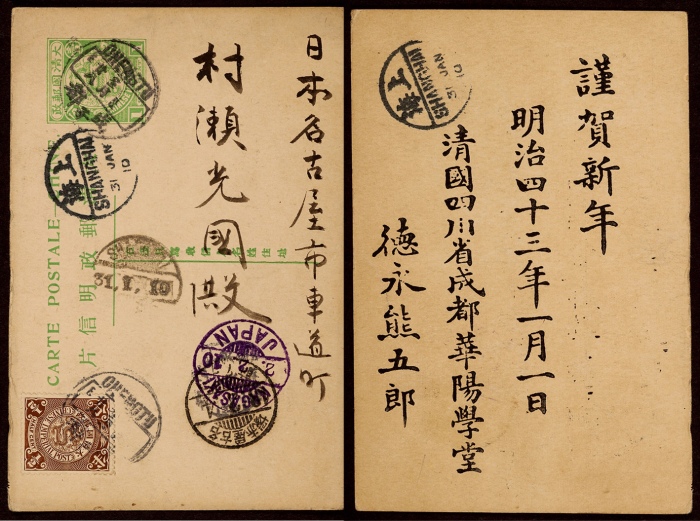 日本名古屋市車道町
村瀬光國殿
大清國郵政
郵政明信片
CARTE POSTALE
CHENGTU
上海
SHANGHAI
31 JAN
10
31.1.10
NAGASAKI
JAPAN
2.2.10
名古屋
CHENGTU
謹賀新年
明治四十三年一月一日
清國四川省成都華陽學堂
德永熊五郎
上海
SHANGHAI
31 JAN
10